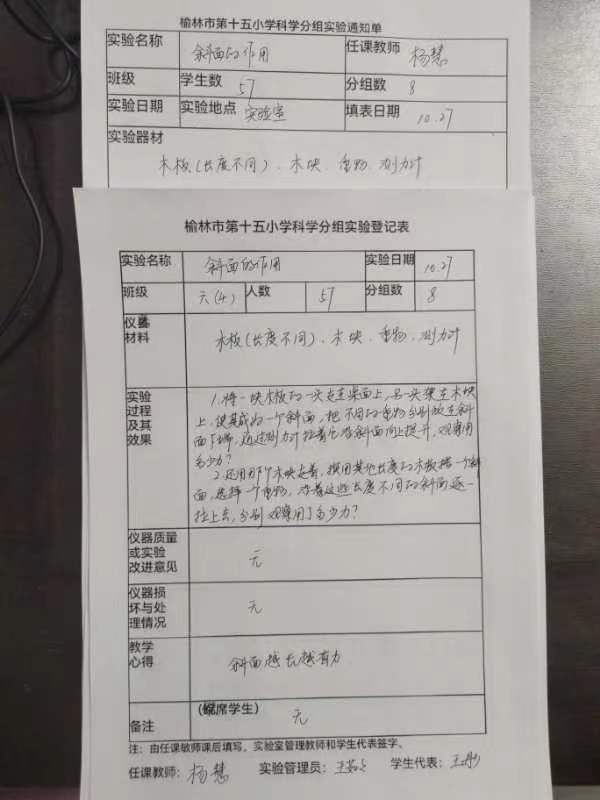 榆林市第十五小学科学分组实验通知单
实验名称 斜面的作用 任课教师 杨慧
班级 学生数 57 分组数 8
实验日期 实验地点 实验室 填表日期 10.27
实验器材
木板(长度不同)、木块、重物、测力计
榆林市第十五小学科学分组实验登记表
实验名称 斜面的作用 实验日期 10.27
班级 六(4) 人数 57 分组数 8
仪器
材料
木板(长度不同)、木块、重物、测力计
实验
过程
及其
效果
1.将一块木板的一头走在桌面上,另一头架在木块
上,使其成为一个斜面,把不同的重物分别放在斜
面下端,通过测力计拉着它沿斜面向上提升,观察用
多少力?
2.还用那个木块支着,换用其他长度的木板搭一个斜
面,选择一个重物,沿着这些长度不同的斜面逐一
拉上去,分别观察用了多少力?
仪器质量
或实验
改进意见
无
仪器损
坏与处
理情况
无
教学
心得
斜面越长越省力
备注
(缺席学生)
无
注:由任课教师课后填写,实验室管理教师和学生代表签字。
任课教师:杨慧 实验管理员: 学生代表: